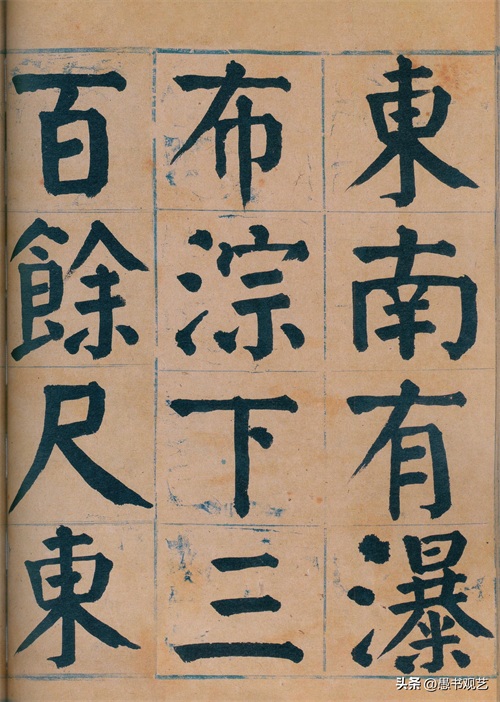 東南有瀑
布淙下三
百餘尺東
头条 @愚书观艺